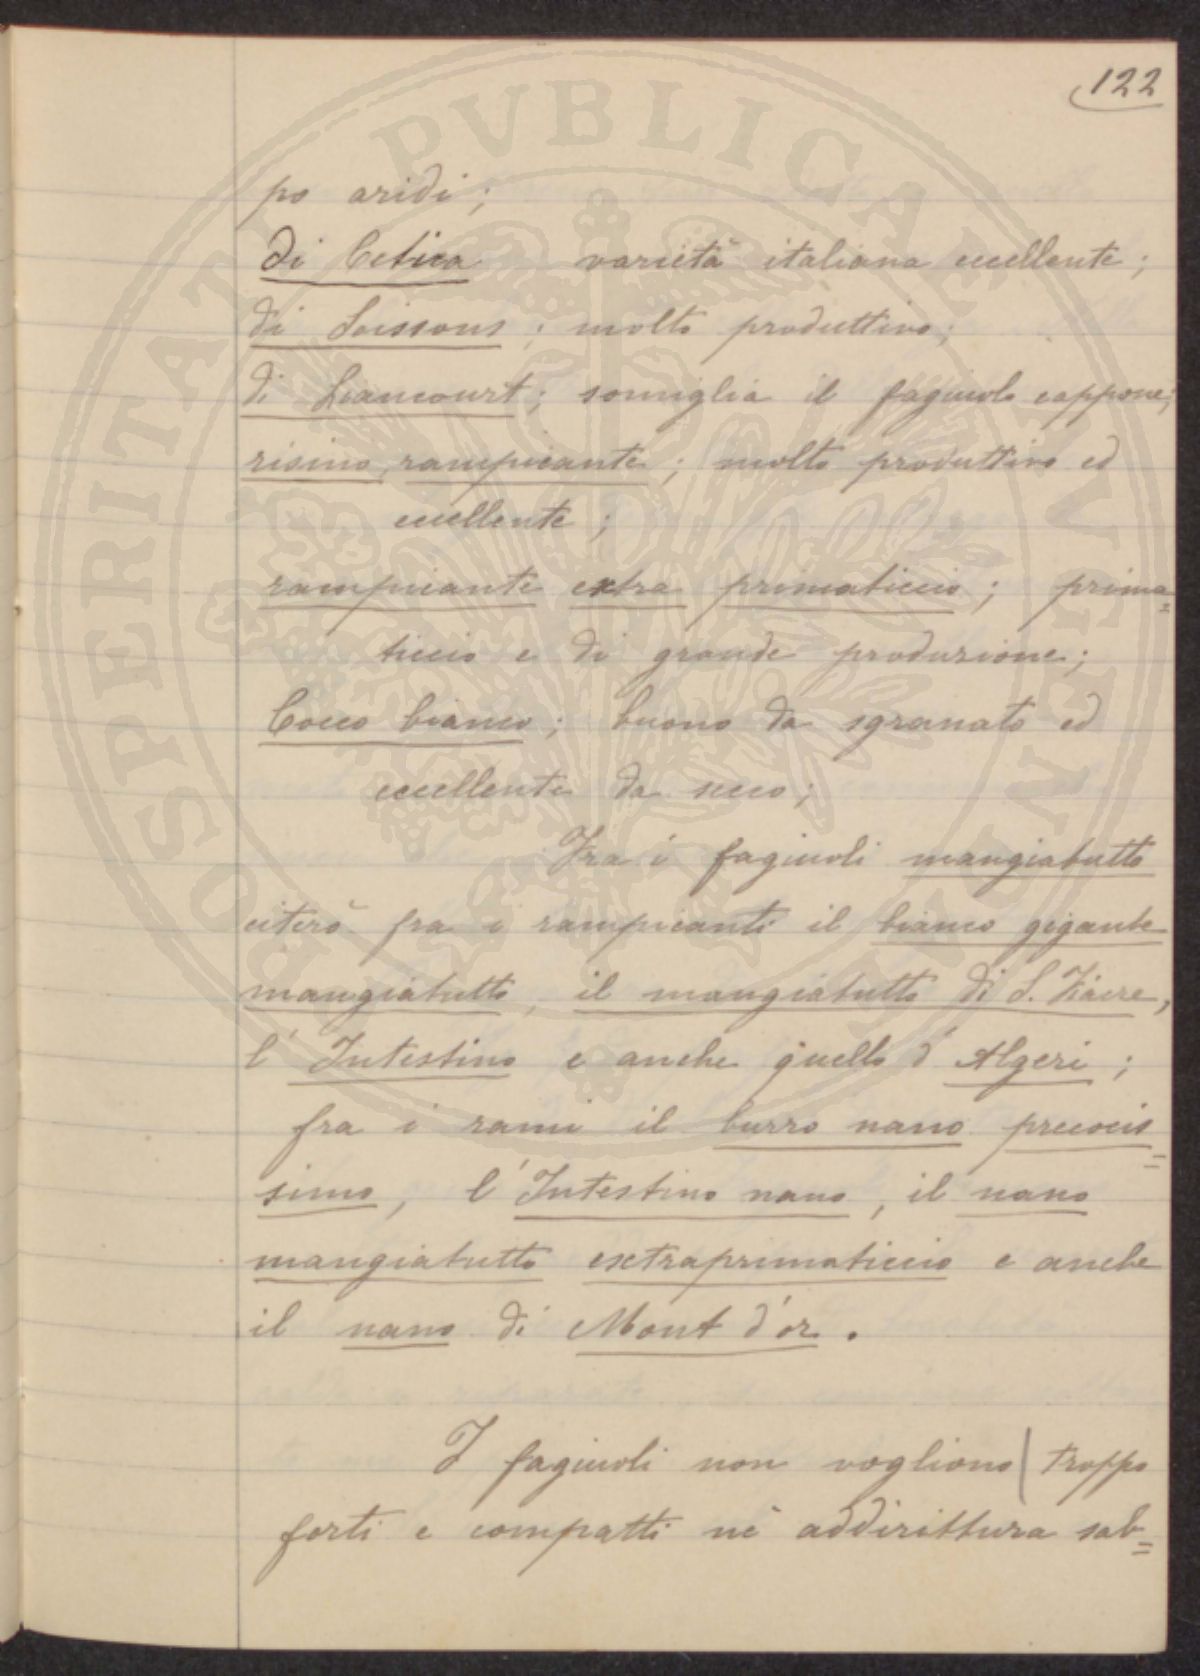 122
po aridi;
di Cetica varietà italiana eccellente;
di Soissons; molto produttivo;
di Liancourt; somiglia il fagiuolo cappone;
risino rampicante; molto produttivo ed
eccellente;
rampicante extra primaticcio; prima=
ticcio e di grande produzione;
Cocco bianco; buono da sgranato ed
eccellente da secco;
Fra i fagiuoli mangiatutto
citerò fra i rampicanti il bianco gigante
mangiatutto, il mangiatutto di S. Fiacre,
l'Intestino e anche quello d'Algeri;
fra i nani il burro nano precocis=
simo, l'Intestino nano, il nano
mangiatutto extraprimaticcio e anche
il nano di Mont d'or.
I fagiuoli non vogliono | troppo
forti e compatti nè addirittura sab=
PROSPERITATI PVBLICAE AVGENDAE